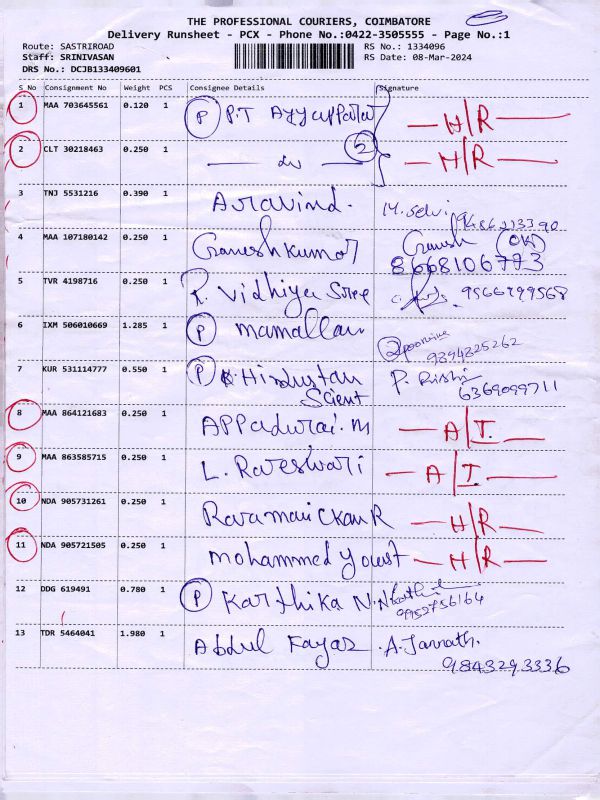 THE PROFESSIONAL COURIERS, COIMBATORE
Delivery Runsheet - PCX - Phone No.:0422-3505555 - Page No.:1
Route: SASTRIROAD RS No.: 1334096
Staff: SRINIVASAN RS Date: 08-Mar-2024
DRS No.: DCJB133409601
S No Consignment No Weight PCS Consignee Details Signature
1 MAA 703645561 0.120 1 P P.T H/R
2 CLT 30218463 0.250 1 2 H/R
3 TNJ 5531216 0.390 1 Aravind. M. Selvi 9486213390
4 MAA 107180142 0.250 1 Ganeshkumar Ganesh 8668106773
5 TVR 4198716 0.250 1 R. Vidhiya Sree 9566799568
6 IXM 506010669 1.285 1 P mamallan 9394325262
7 KUR 531114777 0.550 1 P Hindustan P. Rishi
Scient 6369099711
8 MAA 864121683 0.250 1 APPadurai. M A/I.
9 MAA 863585715 0.250 1 L. Rareswari A/I
10 NDA 905731261 0.250 1 H/R
11 NDA 905721505 0.250 1 Mohammed H/R
12 DDG 619491 0.780 1 P Karthika N.N 9952756164
13 TDR 5464041 1.980 1 Abdul Fayaz A. Jannath.
9843293336